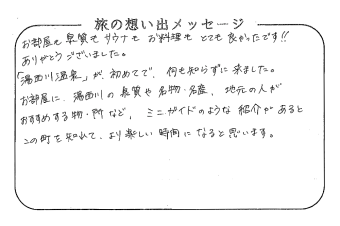 旅の想い出メッセージ
お部屋も泉質もサウナもお料理もとても良かったです!!
ありがとうございました。
「湯西川温泉」が初めてで、何も知らずに来ました。
お部屋に、湯西川の泉質や名物・名産、地元の人が
おすすめする物・所など、ミニガイドのような紹介があると
この町を知れて、より楽しい時間になると思います。